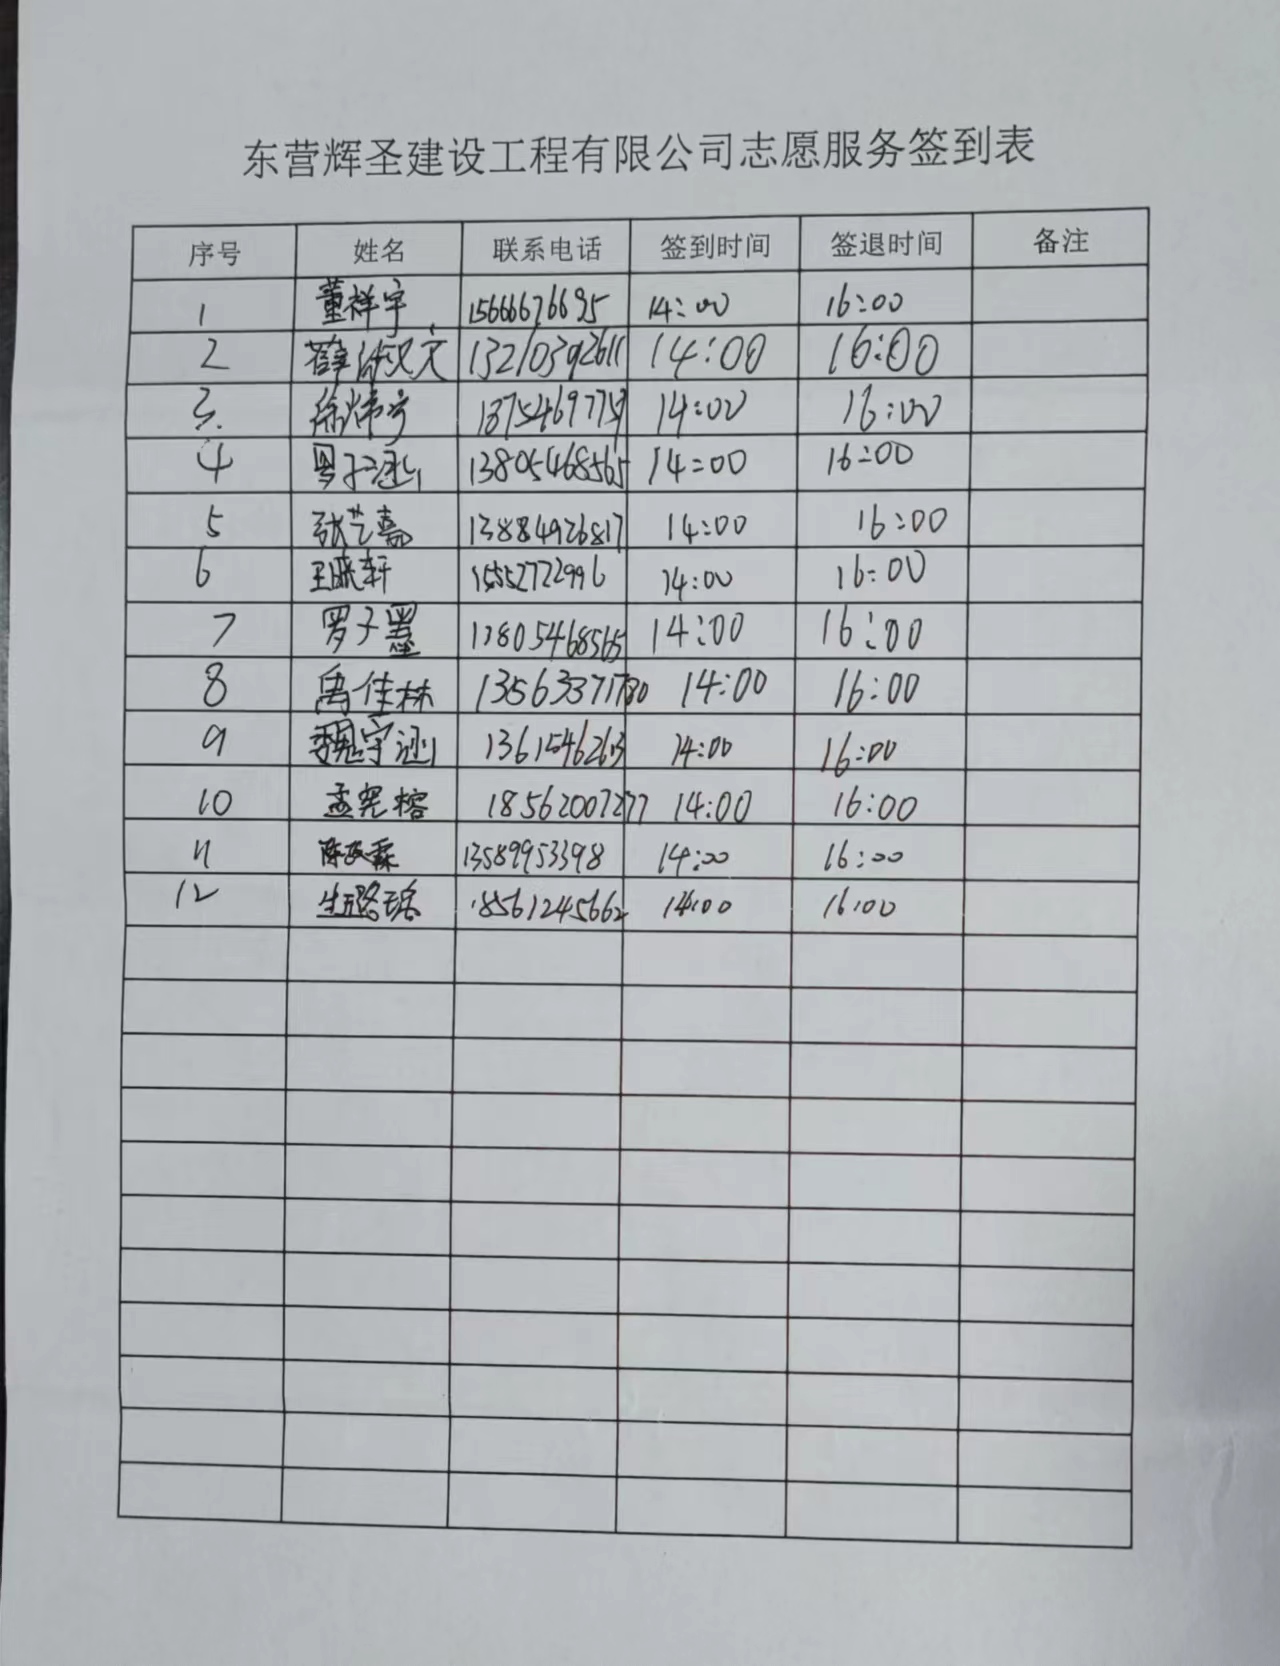 东营辉圣建设工程有限公司志愿服务签到表
序号 姓名 联系电话 签到时间 签退时间 备注
1 董祥宇 15666676695 14:00 16:00
2 薛 文 13210392611 14:00 16:00
3 徐炜宁 14:00 16:00
4 罗子涵 13805468565 14:00 16:00
5 张艺嘉 13884926817 14:00 16:00
6 王晓轩 15552772996 14:00 16:00
7 罗子墨 13805468565 14:00 16:00
8 禹佳林 13563371780 14:00 16:00
9 魏宇涵 14:00 16:00
10 孟宪榕 18562007277 14:00 16:00
11 陈政霖 13589953398 14:00 16:00
12 生璐瑶 18561245662 14:00 16:00